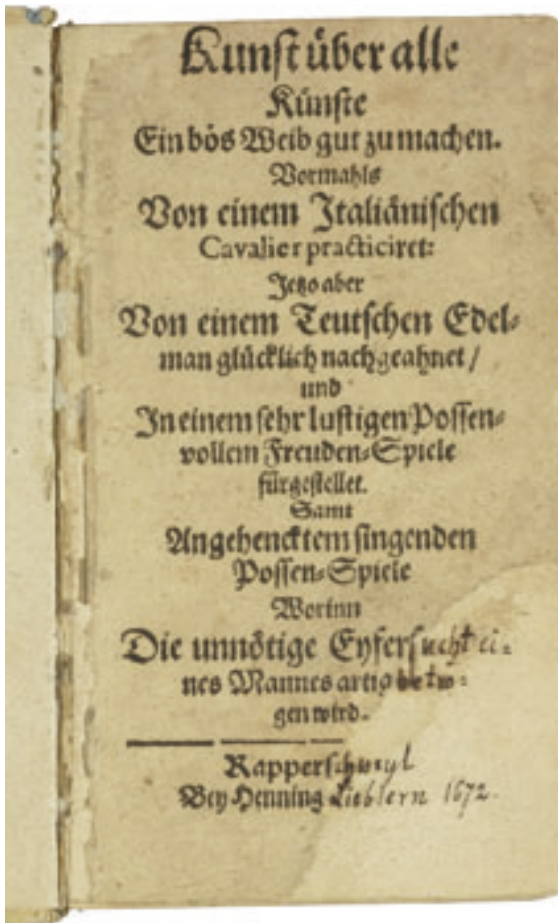 Kunst über alle
Künste
Ein bös Weib gut zu machen.
Vormahls
Von einem Italiänischen
Cavalier practiciret:
Jetzo aber
Von einem Teutschen Edel-
man glücklich nachgeahnet /
und
In einem sehr lustigen Possen-
vollem Freuden-Spiele
fürgestellet.
Samt
Angehencktem singenden
Possen-Spiele
Worinn
Die unnötige Eyfersucht ei-
nes Mannes artig betro-
gen wird.
Rapperschweyl
Bey Henning Lieblern 1672.